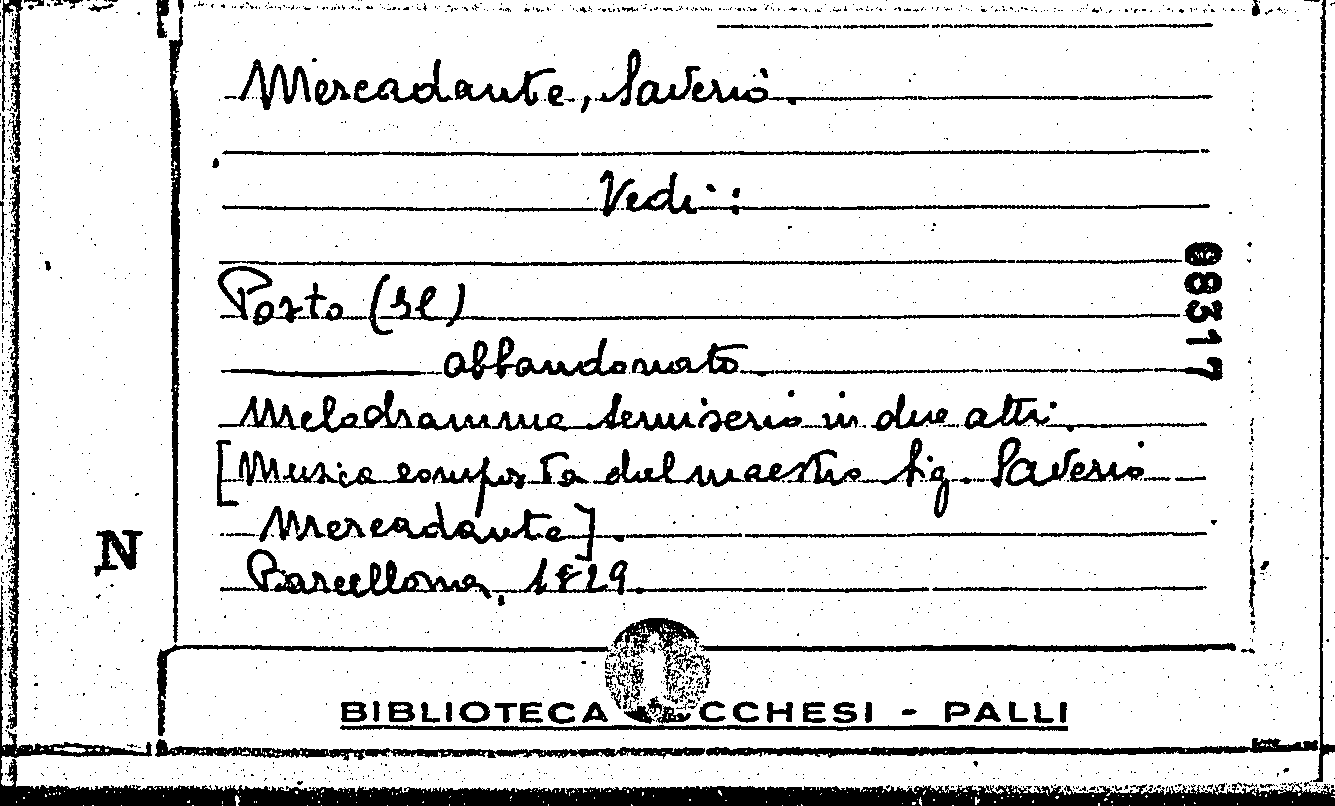 Mercadante, Saverio.
Vedi:
Posto (Il)
abbandonato.
Melodramma semiserio in due atti.
[Musica composta dal maestro Sig. Saverio
Mercadante].
Barcellona, 1829.
08317
N
BIBLIOTECA CCHESI - PALLI